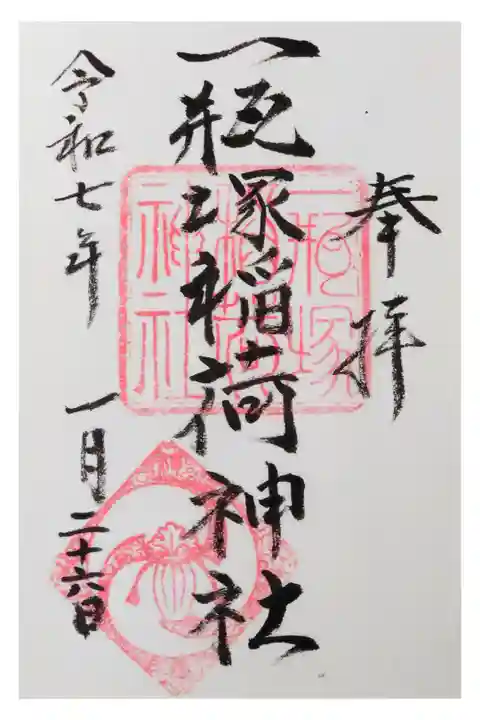 奉拝
一瓶塚稲荷神社
一瓶塚
稲荷
神社
令和七年 一月二十六日